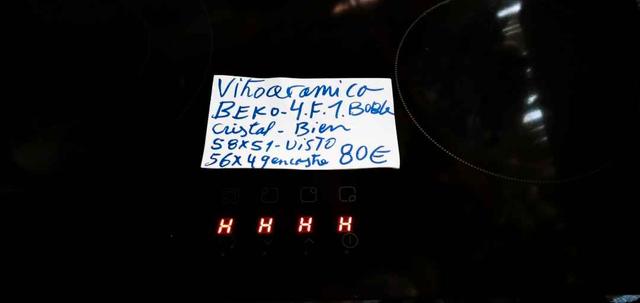 Vitroceramica
BEKO-4.F.1.Doble
Cristal-Bien
58x51-VISTO
56x49 encastre 80€
H H H H